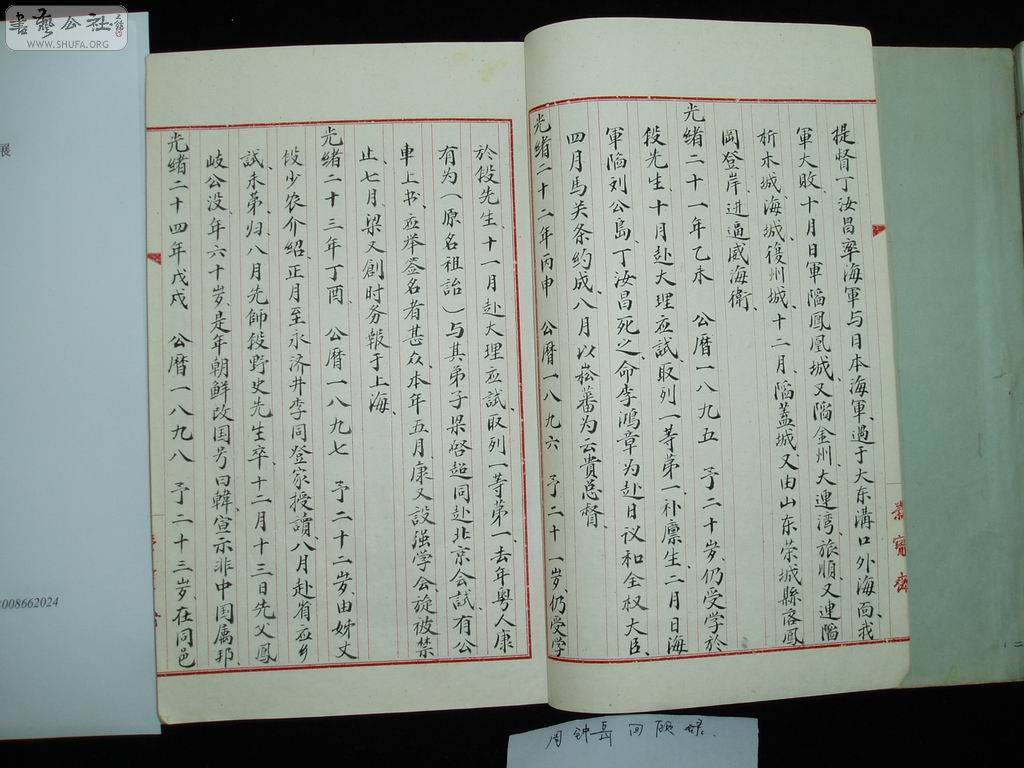 書藝公社
WWW.SHUFA.ORG
展
008662024
提督丁汝昌率海軍与日本海軍、遇于大东溝口外海面、我
軍大敗、十月日軍陷鳳凰城、又陷金州大連湾、旅順、又連陷
析木城、海城、復州城、十二月、陷蓋城、又由山东荣城縣落鳳
岡登岸、进逼威海衛、
光緒二十一年乙未 公曆一八九五 予二十岁、仍受学於
段先生、十月赴大理应試、取列一等第一、补廪生、二月日海
軍陷刘公島、丁汝昌死之、命李鴻章为赴日议和全权大臣、
四月馬关条約成、八月以崧蕃为云貴总督、
光緒二十二年丙申 公曆一八九六 予二十一岁、仍受学
於段先生、十一月赴大理应試、取列一等第一、去年粤人康
有为（原名祖詒）与其弟子梁啓超同赴北京会試、有公
車上书、应举签名者甚众、本年五月康又設强学会、旋被禁
止、七月、梁又創时务報于上海、
光緒二十三年丁酉 公曆一八九七 予二十二岁、由姊丈
段少农介紹、正月至永济井李同登家授讀、八月赴省应乡
試、未第、归、八月先師段野史先生卒、十二月十三日先父鳳
岐公没、年六十岁、是年朝鮮改国号曰韓、宣示非中国属邦、
光緒二十四年戊戍 公曆一八九八 予二十三岁、在同邑
荣寳齋
二
周钟岳回顾录.